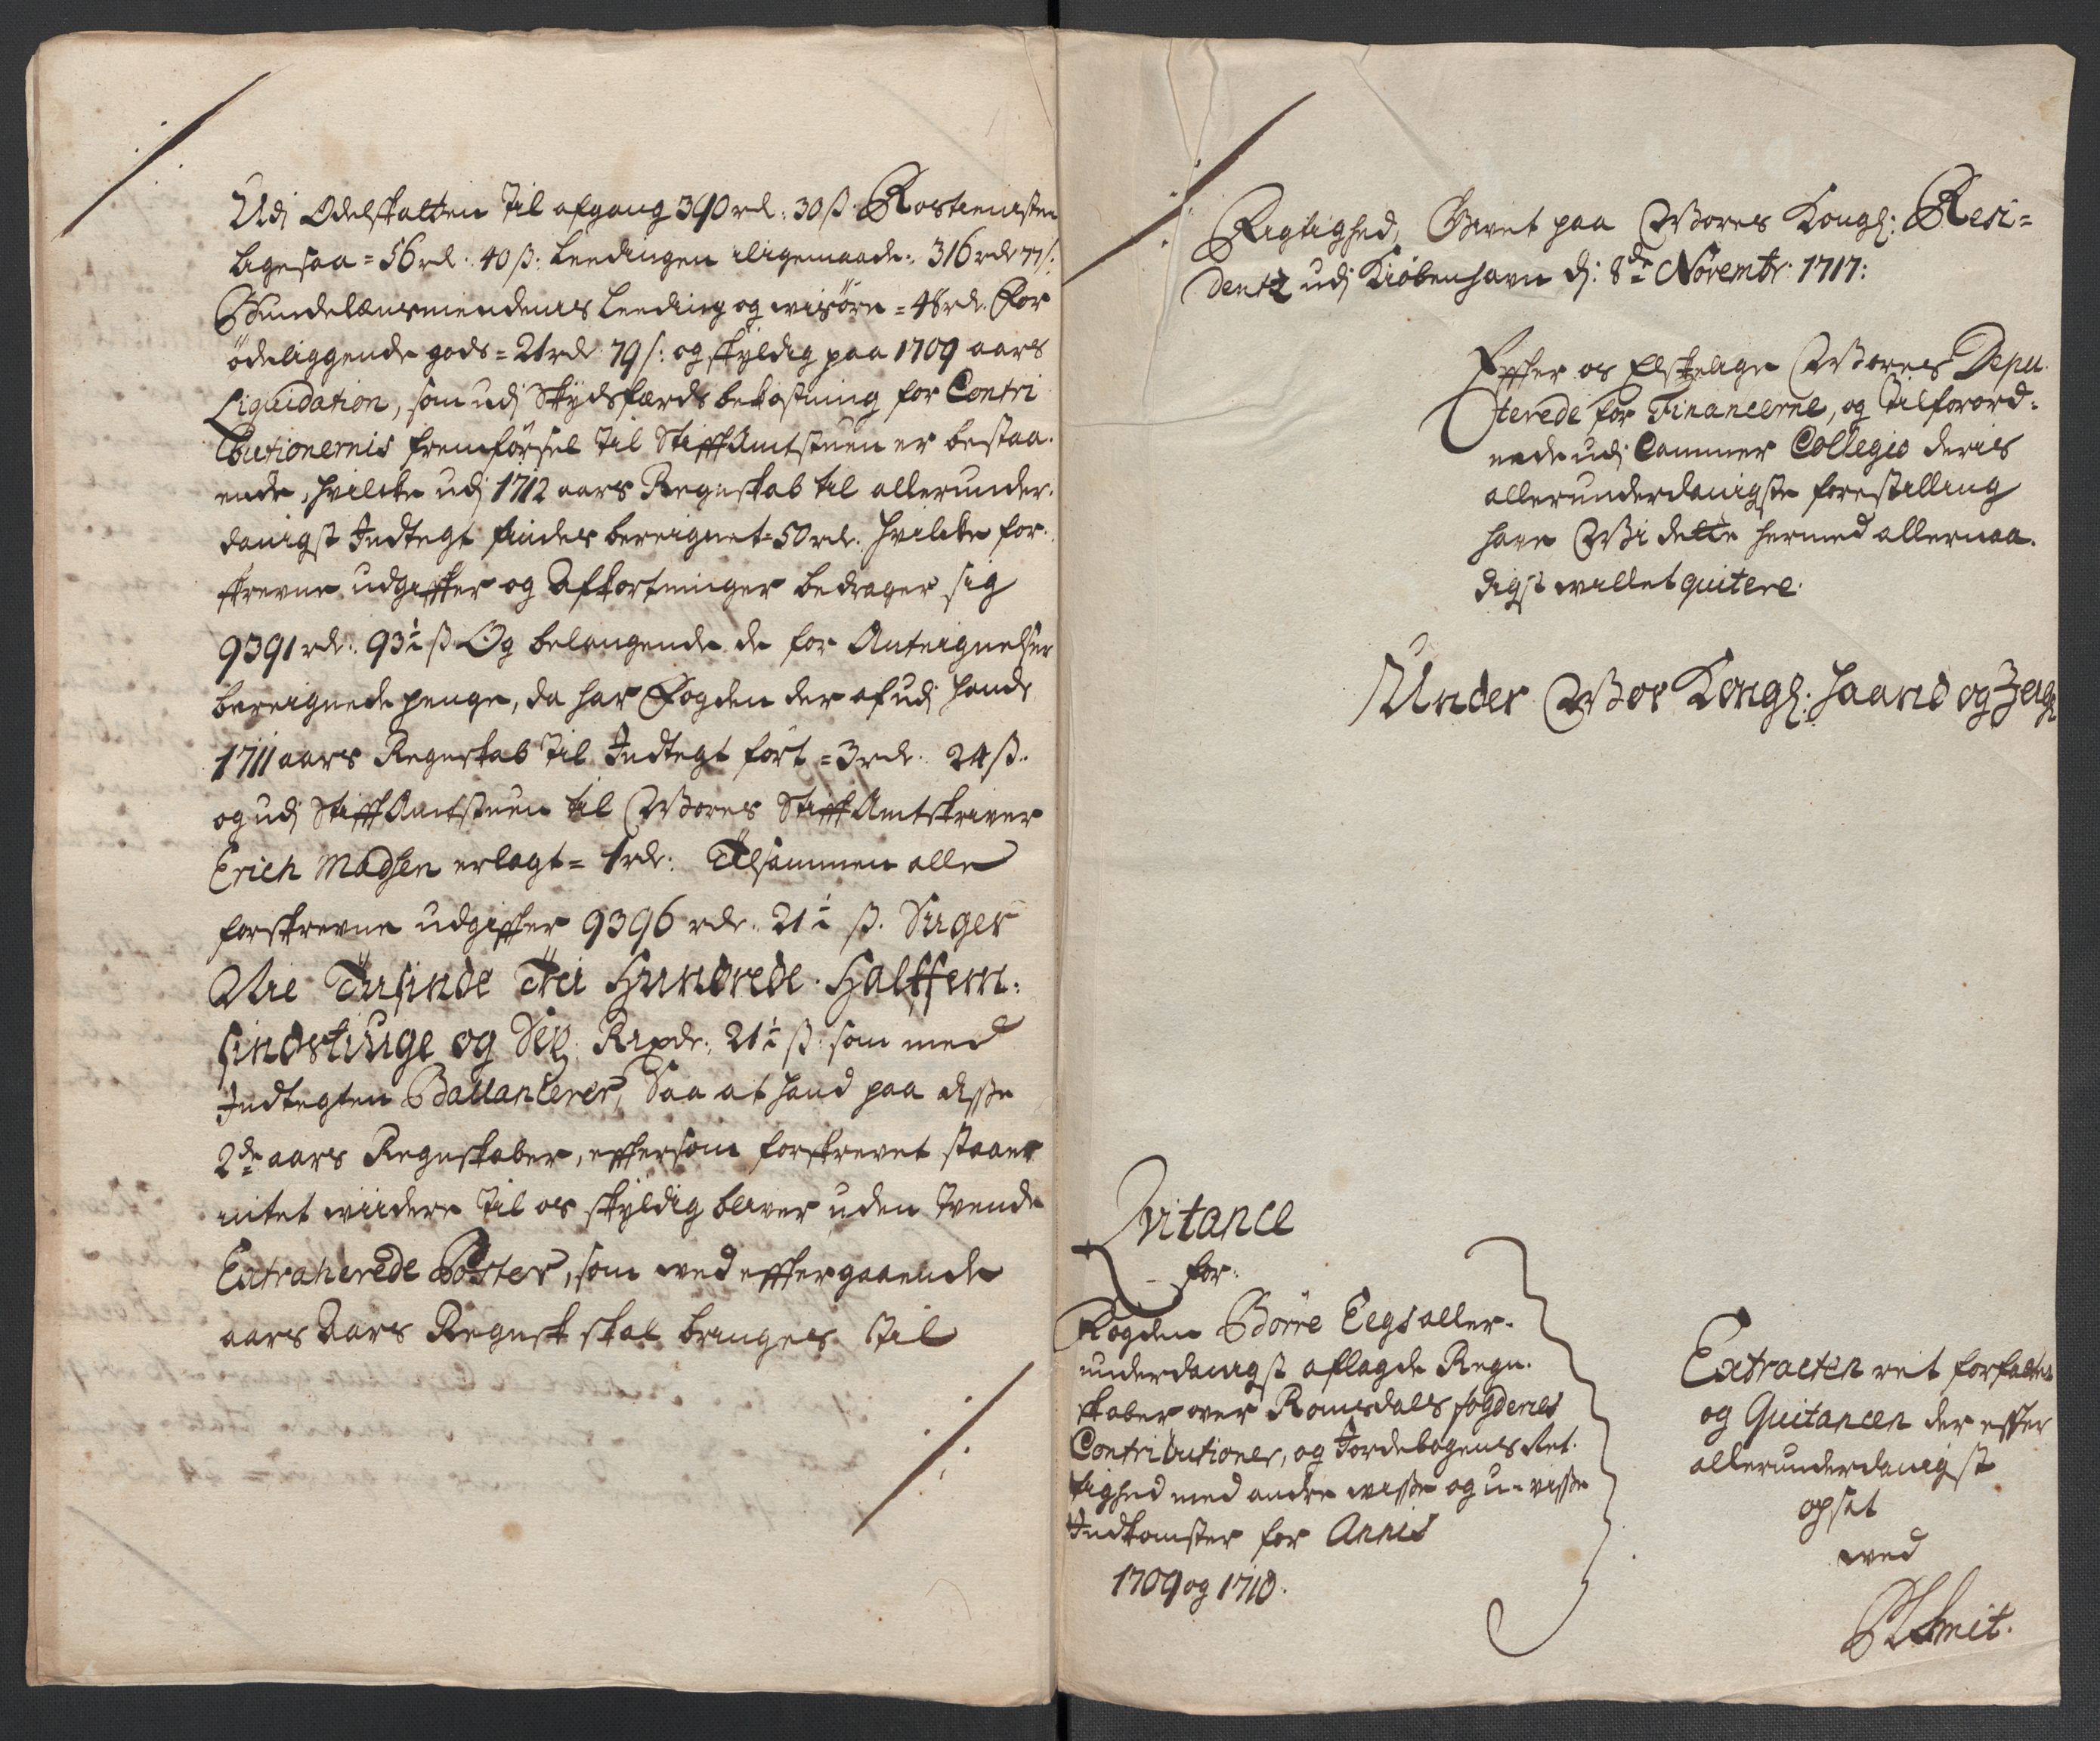 Udj Odelskatten til afgang 390 rd: 30 ß. Rostienisten
ligesaa = 56 rd. 40 ß. Leedingen iligemaade: 316 rdr 77 ß:
Bundelensmendenis Leeding og wisöre = 48 rd. For
ödeliggende gods = 21 rdr 79 ß: og skyldig paa 1709 aars
Liquidation, som udj Skydsfærds bekostning for Contri
butionernis fremförsel til StifftAmtstuen er bestaa-
ende, hvilcke udj 1712 aars Regnskab til allerunder-
danigst Indtegt findes bereignet = 50 rdr. hvilcke for-
skrevne udgiffter og Afkortninger bedrager sig
9391 rdr: 93½ ß Og belangende de for Anteignelser
bereignede penge, da har Fogden der af udj hands
1711 aars Regnskab til Indtegt fört = 3 rdr. 24 ß.
og udj StifftAmtstuen til Wores StifftAmtskriver
Erich Madsen erlagt = 1 rdr: Tilsammen alle
forskrevne udgiffter 9396 rdr. 21½ ß. Siger
Nie Tusinde Trei Hundrede Halffem-
sindstiuge og Sex Rixdr: 21½ ß. som med
Indtegten Ballancerer, Saa at hand paa disse
2de aars Regnskaber, effter som forskrevet staaer
intet viidere til os skyldig bliver uden tvende
Extraherede Poster, som ved efftergaaende
aars Aars Regnsk skal bringes til
Rigtighed, Givet paa Wores Kongl: Resi-
dentz udj Kiöbenhavn dj: 8de Novembr: 1717:
Effter os Elskelige Wores Depu-
terede for Financerne, og Tilforord-
nede udj Cammer Collegio deris
allerunderdanigste forestilling
have Wi dette hermed allernaa-
digst willet quitere.
Under Wor Kongl: Haand og Zeigl
Qvitance
for
Fogden Börre Eegs aller-
underdanigst aflagde Regn-
skaber over Romsdals fogderies
Contributioner, og Jordebogens Ret-
tighed med andre wisse og u-visse
Indkomster for Annis
1709 og 1710.
Extracten ret forfattet
og Quitancen der effter
allerunderdanigst
opsat
ved
Smit.